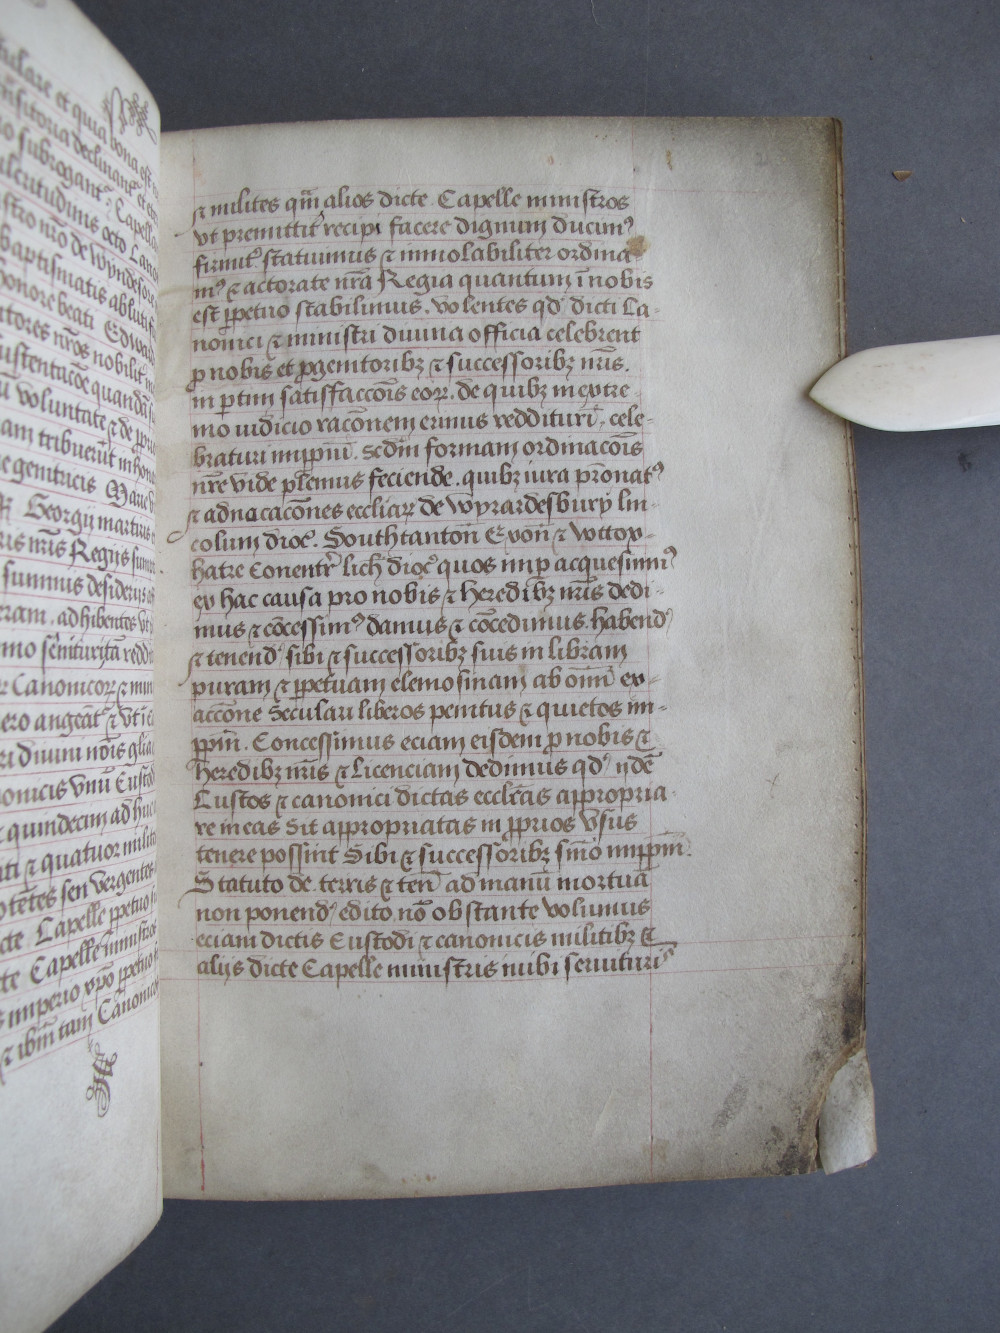 ulare et quia bona est
nsitoria declinant et
o subrogant Capella
ulcritudinis octo Cano
stro nro de Wyndesore
baptismatis abluti
honore beati Edward
tores nros nobilit
ustentacõe quandã
voluntate & de
am tribuerũt in hon
e genitricis Marie
Georgij martiris
ris nris Regijs
summis desiderijs
eram . adhibentes vt
mo senituritã redd
Canonicoꝝ & min
ero angeãt & vt
ri diuini nõis gl
onicis vnũ Custod
& quindecim ad huc
ati & quatuor milit
otẽtes seu vergentes
cte Capelle ꝑpetuo
te Capelle ministros
imperio xpõ ꝑpetuo
& ibm̃ tam Canonic
& milites qm̃ alios dicte Capelle ministros
vt premittitʳ recipi facere dignum ducimꝰ
firmit̃ statuimus & inuiolabiliter ordina
mꝰ & actorate nr̃a Regia quantum ĩ nobis
est ꝑpetuo stabilimus . volentes qd̓ dicti Ca-
nonici & ministri diuina officia celebrent
ꝓ nobis et ꝓgenitoribꝫ & successoribꝫ nr̃is .
in ꝑtim satisfaccõis eoꝝ . de quibꝫ in extre-
mo iudicio racõnem erimus reddituri . cele-
braturi imꝑpm̃ . Scdm̃ formam ordinacõis
nr̃e vide pl̃emus feciende . quibꝫ iura pr̃onatꝰ
& aduacacõnes eccliaꝝ de Wyrardesbury lin-
colum dioc̃ . Southtanton̄ Exon̄ & vttox-
hatre Conentr̃ lich̃ dioc̃ quos nup acquesimꝰ
ex hac causa pro nobis & heredibꝫ nr̃is dedi-
mus & cõcessimꝰ damus & cõcedimus . habend̓
& tenend̓ sibi & successoribꝫ suis in libram
puram & ꝑpetuam elemosinam ab om̃i ex-
accõne Seculari liberos penitus & quietos im-
ꝑpm̃ . Concessimus eciam eisdem ꝓ nobis &
heredibꝫ nr̃is & Licenciam dedimus qd̓ ijdẽ
Custos & canonici dictas eccl̃eas appropria-
re in eas Sit appropriatas in ꝓprios vsus
tenere possint Sibi & successoribꝫ sm̃o imꝑpm̃ .
Statuto de . terris & ten̄ ad manũ mortuã
non ponend̓ edito nõ obstante volumus
eciam dictis Custodi & canonicis militibꝫ &
alijs dicte Capelle ministris inibi seruituris